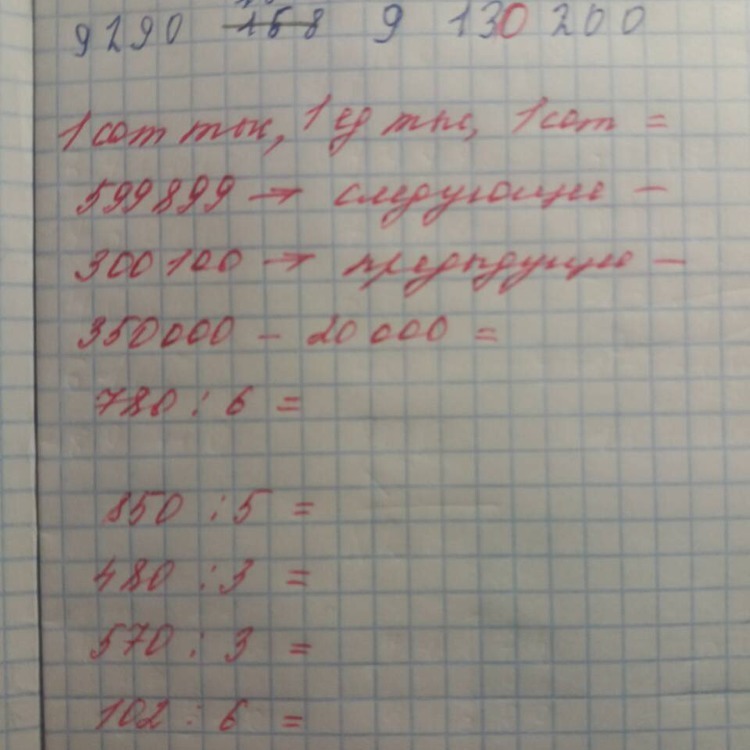 9290 168 9 130 200
1 сот тыс, 1 ед тыс, 1 сот =
599899 → следующее -
300100 → предыдущее -
350000 - 20000 =
780 : 6 =
850 : 5 =
480 : 3 =
570 : 3 =
102 : 6 =